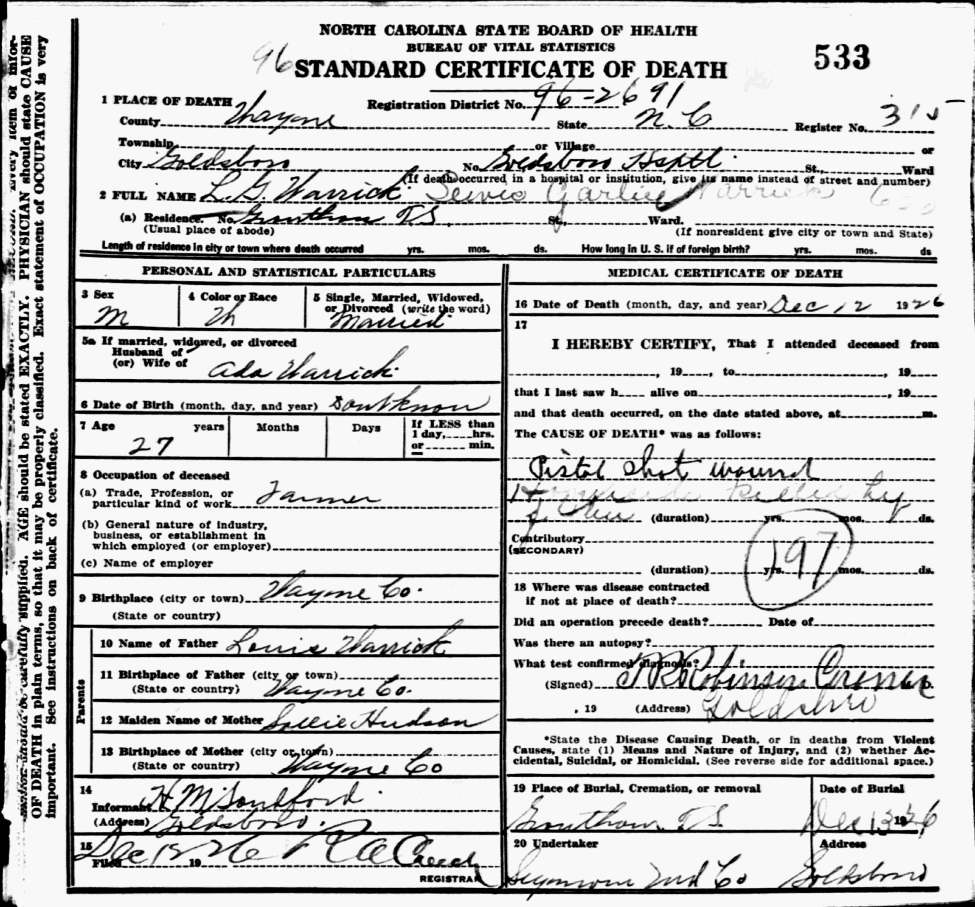 NORTH CAROLINA STATE BOARD OF HEALTH
BUREAU OF VITAL STATISTICS
96 STANDARD CERTIFICATE OF DEATH 533
1 PLACE OF DEATH Registration District No. 96-2691
County Wayne State N.C Register No. 315
Township or Village or
City Goldsboro No. Goldsboro Hsptl. St., Ward
(If death occurred in a hospital or institution, give its name instead of street and number)
2 FULL NAME L. G. Warrick Warrick
(a) Residence. No. Grantham T.S. St., Ward.
(Usual place of abode) (If nonresident give city or town and State)
Length of residence in city or town where death occurred yrs. mos. ds. How long in U. S. if of foreign birth? yrs. mos. ds
PERSONAL AND STATISTICAL PARTICULARS
3 Sex 4 Color or Race 5 Single, Married, Widowed, or Divorced (write the word)
M Wh Married
5a If married, widowed, or divorced
Husband of
(or) Wife of Ada Warrick
6 Date of Birth (month, day, and year) Dont know
7 Age years Months Days If LESS than 1 day, hrs. or min.
27
8 Occupation of deceased
(a) Trade, Profession, or
particular kind of work Farmer
(b) General nature of industry,
business, or establishment in
which employed (or employer)
(c) Name of employer
9 Birthplace (city or town) Wayne Co.
(State or country)
Parents
10 Name of Father Louis Warrick
11 Birthplace of Father (city or town)
(State or country) Wayne Co.
12 Maiden Name of Mother Sallie Hudson
13 Birthplace of Mother (city or town)
(State or country) Wayne Co
14
Informant H M
(Address) Goldsboro.
15
Filed Dec 19 26
REGISTRAR
MEDICAL CERTIFICATE OF DEATH
16 Date of Death (month, day, and year) Dec 12 1926
17
I HEREBY CERTIFY, That I attended deceased from
, 19 , to , 19
that I last saw h alive on , 19
and that death occurred, on the date stated above, at m.
The CAUSE OF DEATH* was as follows:
Pistol shot wound
Killed by
(duration) yrs. mos. ds.
Contributory
(SECONDARY)
197
(duration) yrs. mos. ds.
18 Where was disease contracted
if not at place of death?
Did an operation precede death? Date of
Was there an autopsy?
What test confirmed diagnosis?
(Signed) T R Robinson Coroner
, 19 (Address) Goldsboro
*State the Disease Causing Death, or in deaths from Violent
Causes, state (1) Means and Nature of Injury, and (2) whether Ac-
cidental, Suicidal, or Homicidal. (See reverse side for additional space.)
19 Place of Burial, Cremation, or removal Date of Burial
Grantham T.S Dec 13 1926
20 Undertaker Address
Seymour Co Goldsboro
mation should be carefully supplied. AGE should be stated EXACTLY. PHYSICIAN should state CAUSE
OF DEATH in plain terms, so that it may be properly classified. Exact statement of OCCUPATION is very
important. See instructions on back of certificate.